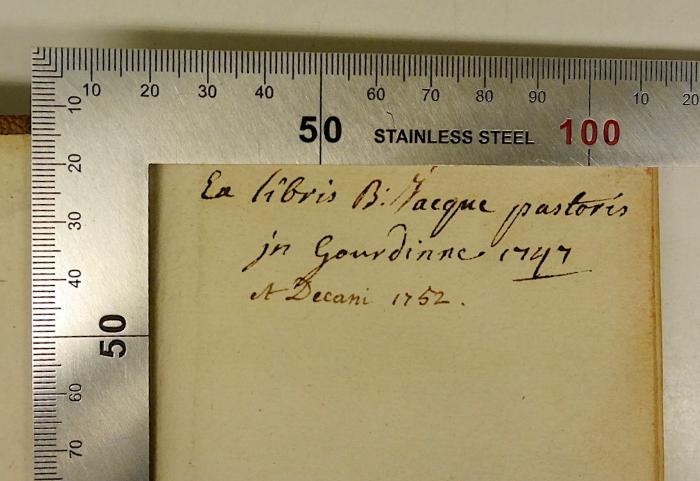 10 20 30 40 50 60 70 80 90 100 10 20
STAINLESS STEEL
10
20
30
40
50
60
70
Ex libris B: Jacque pastoris
jn Gourdinne 1747
et Decani 1752.